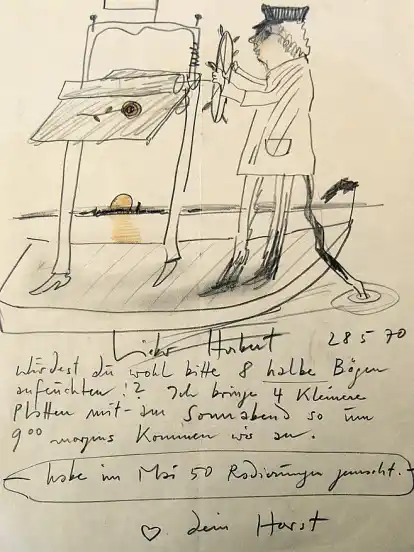 Lieber Herbert 28 5 70
würdest du wohl bitte 8 halbe Bögen
anfeuchten !? Ich bringe 4 Kleinere
Platten mit - am Sonnabend so um
9⁰⁰ morgens kommen wir an.
habe im Mai 50 Radierungen gemacht.
♡ dein Horst